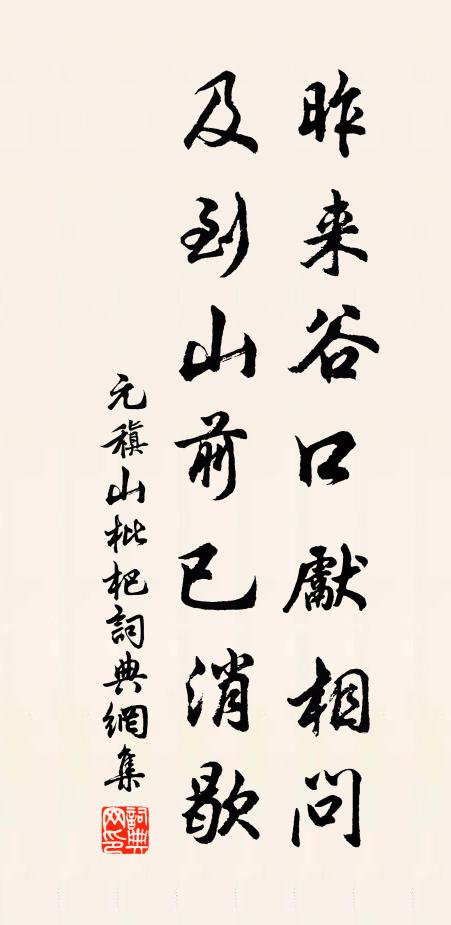 昨来谷口獻相問
及到山前已消歇
元稹山枇杷詞典網集
詞典网印